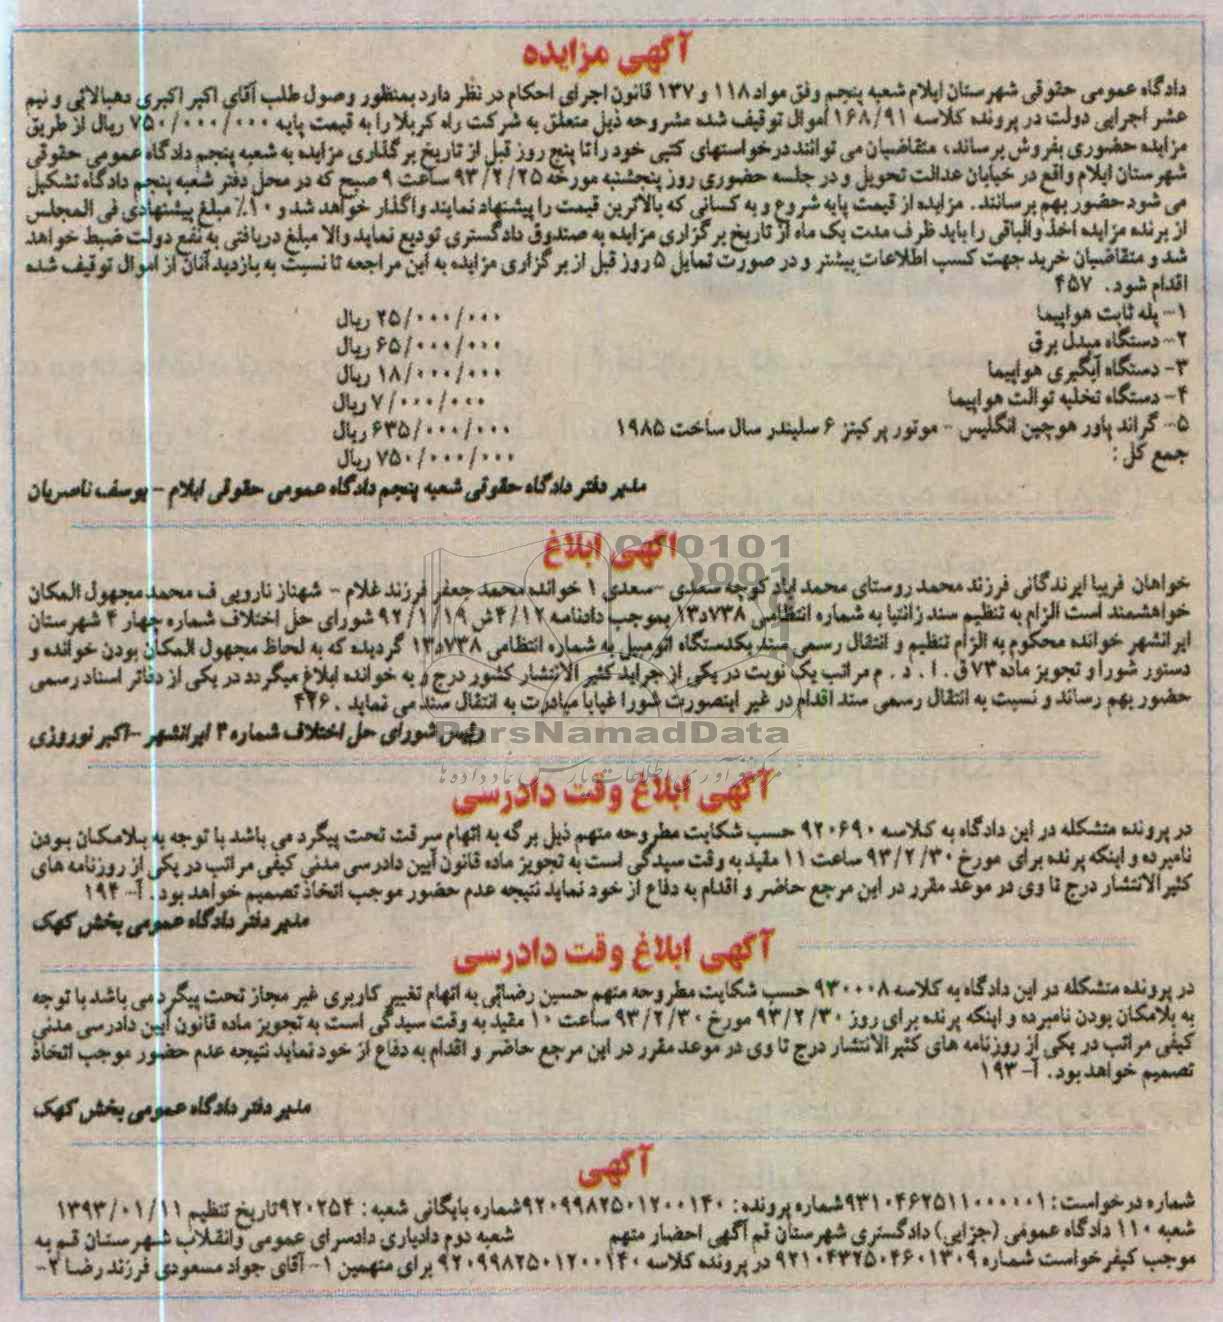 آگهی مزایده
دادگاه عمومی حقوقی شهرستان ایلام شعبه پنجم وفق مواد ۱۱۸ و ۱۳۷ قانون اجرای احکام در نظر دارد بمنظور وصول طلب آقای اکبر اکبری دهبالائی و نیم
عشر اجرایی دولت در پرونده کلاسه ۱۶۸/۹۱ اموال توقیف شده مشروحه ذیل متعلق به شرکت راه کربلا را به قیمت پایه ۷۵۰/۰۰۰/۰۰۰ ریال از طریق
مزایده حضوری بفروش برساند، متقاضیان می توانند درخواستهای کتبی خود را تا پنج روز قبل از تاریخ برگذاری مزایده به شعبه پنجم دادگاه عمومی حقوقی
شهرستان ایلام واقع در خیابان عدالت تحویل و در جلسه حضوری روز پنجشنبه مورخه ۹۳/۲/۲۵ ساعت ۹ صبح که در محل دفتر شعبه پنجم دادگاه تشکیل
می شود حضور بهم برسانند. مزایده از قیمت پایه شروع و به کسانی که بالاترین قیمت را پیشنهاد نمایند واگذار خواهد شد و ۱۰٪ مبلغ پیشنهادی فی المجلس
از برنده مزایده اخذ والباقی را باید ظرف مدت یک ماه از تاریخ برگزاری مزایده به صندوق دادگستری تودیع نماید والا مبلغ دریافتی به نفع دولت ضبط خواهد
شد و متقاضیان خرید جهت کسب اطلاعات بیشتر و در صورت تمایل ۵ روز قبل از برگزاری مزایده به این مراجعه تا نسبت به بازدید آنان از اموال توقیف شده
اقدام شود. ۴۵۷
۱- پله ثابت هواپیما ۲۵/۰۰۰/۰۰۰ ریال
۲- دستگاه مبدل برق ۶۵/۰۰۰/۰۰۰ ریال
۳- دستگاه آبگیری هواپیما ۱۸/۰۰۰/۰۰۰ ریال
۴- دستگاه تخلیه توالت هواپیما ۷/۰۰۰/۰۰۰ ریال
۵- گراند پاور هوچین انگلیس - موتور پرکینز ۶ سلیندر سال ساخت ۱۹۸۵ ۶۳۵/۰۰۰/۰۰۰ ریال
جمع کل: ۷۵۰/۰۰۰/۰۰۰ ریال
مدیر دفتر دادگاه حقوقی شعبه پنجم دادگاه عمومی حقوقی ایلام - یوسف ناصریان
آگهی ابلاغ
خواهان فریبا ایرندگانی فرزند محمد روستای محمد اباد کوچه سعدی -سعدی ۱ خوانده محمد جعفر فرزند غلام - شهناز نارویی ف محمد مجهول المکان
خواهشمند است الزام به تنظیم سند زانتیا به شماره انتظامی ۷۳۸د۱۳ بموجب دادنامه ۴/۱۲ش ۹۲/۱/۱۹ شورای حل اختلاف شماره چهار ۴ شهرستان
ایرانشهر خوانده محکوم به الزام تنظیم و انتقال رسمی سند یکدستگاه اتومبیل به شماره انتظامی ۷۳۸د۱۳ گردیده که به لحاظ مجهول المکان بودن خوانده و
دستور شورا و تجویز ماده ۷۳ ق. ا. د. م مراتب یک نوبت در یکی از جراید کثیر الانتشار کشور درج و به خوانده ابلاغ میگردد در یکی از دفاتر اسناد رسمی
حضور بهم رساند و نسبت به انتقال رسمی سند اقدام در غیر اینصورت شورا غیابا مبادرت به انتقال سند می نماید. ۴۲۶
رئیس شورای حل اختلاف شماره ۴ ایرانشهر -اکبر نوروزی
ParsNamadData
آگهی ابلاغ وقت دادرسی
در پرونده متشکله در این دادگاه به کلاسه ۹۲۰۶۹۰ حسب شکایت مطروحه متهم ذیل برگه به اتهام سرقت تحت پیگرد می باشد با توجه به بلامکان بودن
نامبرده و اینکه پرنده برای مورخ ۹۳/۲/۳۰ ساعت ۱۱ مقید به وقت سیدگی است به تجویز ماده قانون آیین دادرسی مدنی کیفی مراتب در یکی از روزنامه های
کثیرالانتشار درج تا وی در موعد مقرر در این مرجع حاضر و اقدام به دفاع از خود نماید نتیجه عدم حضور موجب اتخاذ تصمیم خواهد بود. آ- ۱۹۴
مدیر دفتر دادگاه عمومی بخش کهک
آگهی ابلاغ وقت دادرسی
در پرونده متشکله در این دادگاه به کلاسه ۹۳۰۰۰۸ حسب شکایت مطروحه متهم حسین رضائی به اتهام تغییر کاربری غیر مجاز تحت پیگرد می باشد با توجه
به بلامکان بودن نامبرده و اینکه پرنده برای روز ۹۳/۲/۳۰ مورخ ۹۳/۲/۳۰ ساعت ۱۰ مقید به وقت سیدگی است به تجویز ماده قانون آیین دادرسی مدنی
کیفی مراتب در یکی از روزنامه های کثیرالانتشار درج تا وی در موعد مقرر در این مرجع حاضر و اقدام به دفاع از خود نماید نتیجه عدم حضور موجب اتخاذ
تصمیم خواهد بود. آ- ۱۹۳
مدیر دفتر دادگاه عمومی بخش کهک
آگهی
شماره درخواست: ۹۳۱۰۴۶۲۵۱۱۰۰۰۰۰۱ شماره پرونده: ۹۲۰۹۹۸۲۵۰۱۲۰۰۱۴۰ شماره بایگانی شعبه: ۹۲۰۲۵۴ تاریخ تنظیم ۱۳۹۳/۰۱/۱۱
شعبه ۱۱۰ دادگاه عمومی (جزایی) دادگستری شهرستان قم آگهی احضار متهم شعبه دوم دادیاری دادسرای عمومی وانقلاب شهرستان قم به
موجب کیفرخواست شماره ۹۲۱۰۴۳۲۵۰۴۶۰۱۳۰۹ در پرونده کلاسه ۹۲۰۹۹۸۲۵۰۱۲۰۰۱۴۰ برای متهمین ۱- آقای جواد مسعودی فرزند رضا ۲-